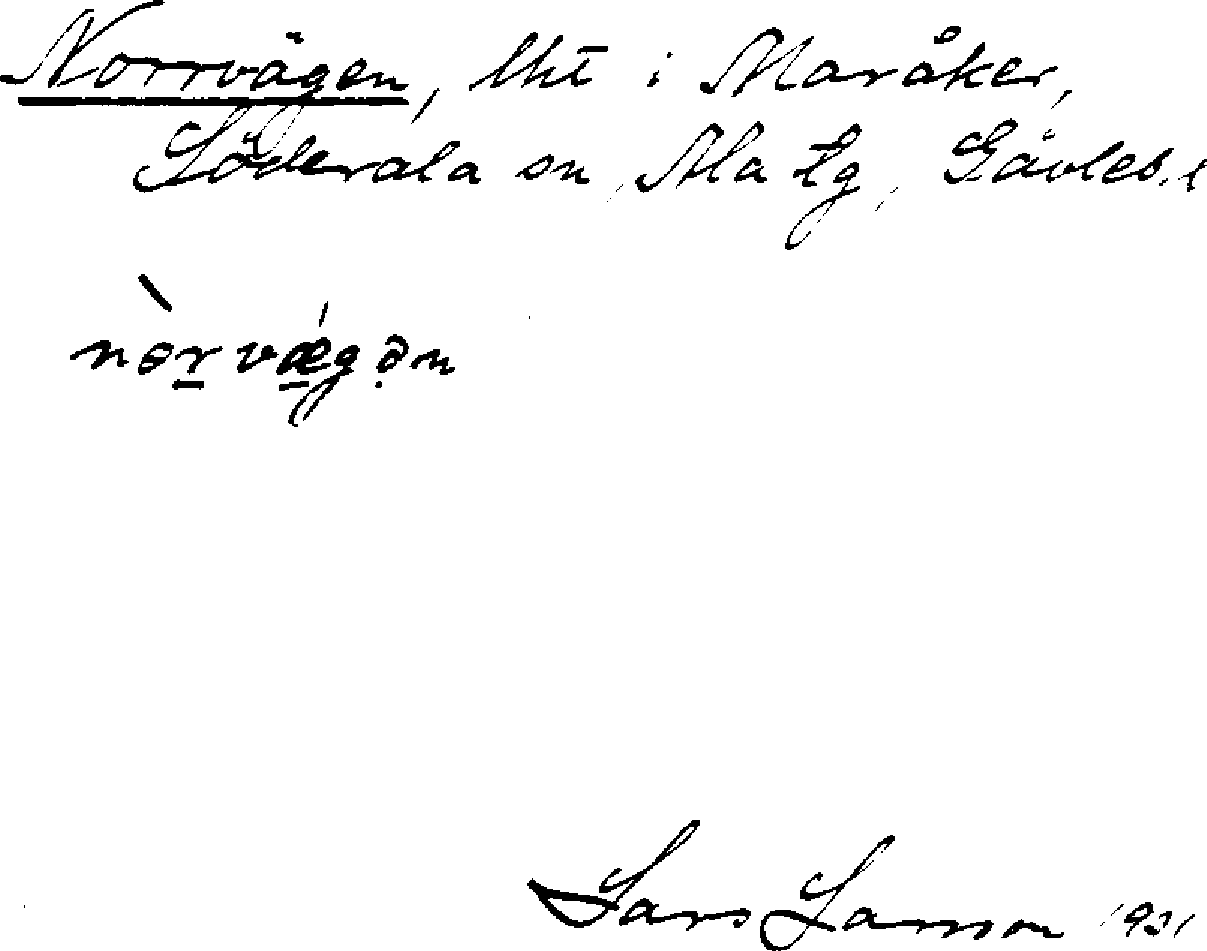 Norrvägen, lht i Maråker,
Söderala sn, Ala tg, Gävleb. l
nòrvǽgən
Lars Larsson 1931